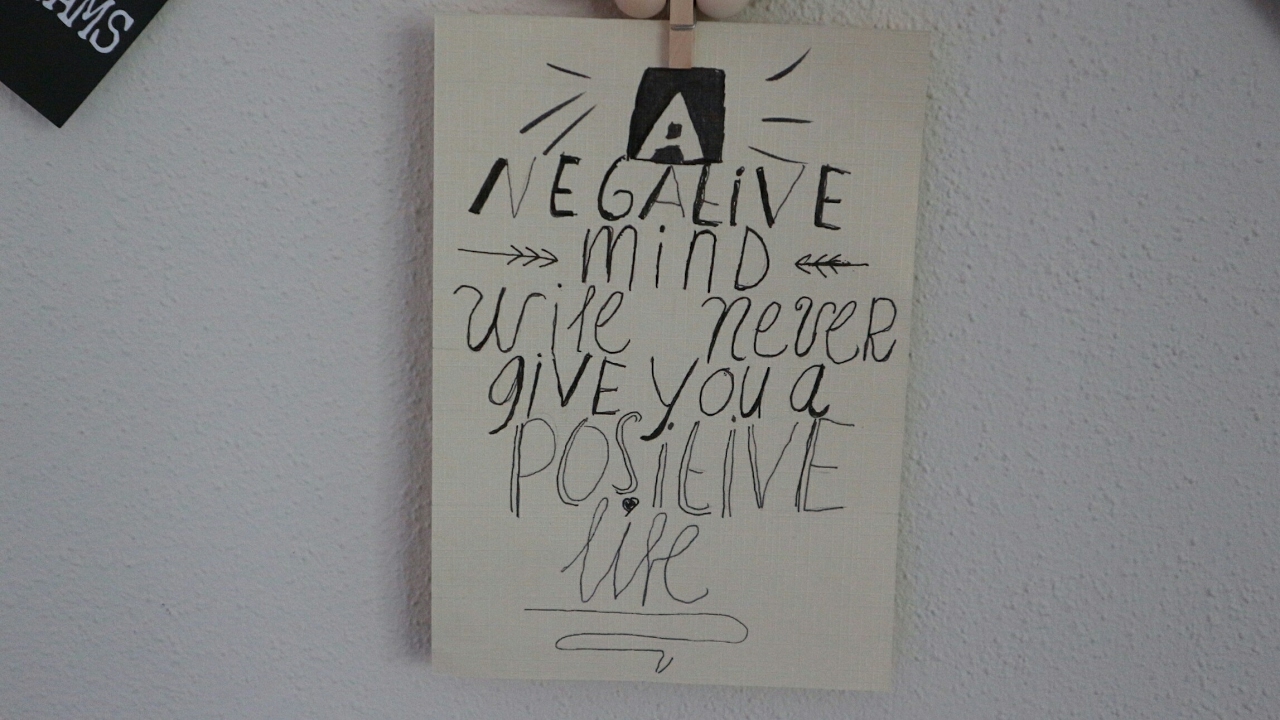 AMS
A
NEGATIVE
minD
will never
giVE you a
POSiTiVE
life